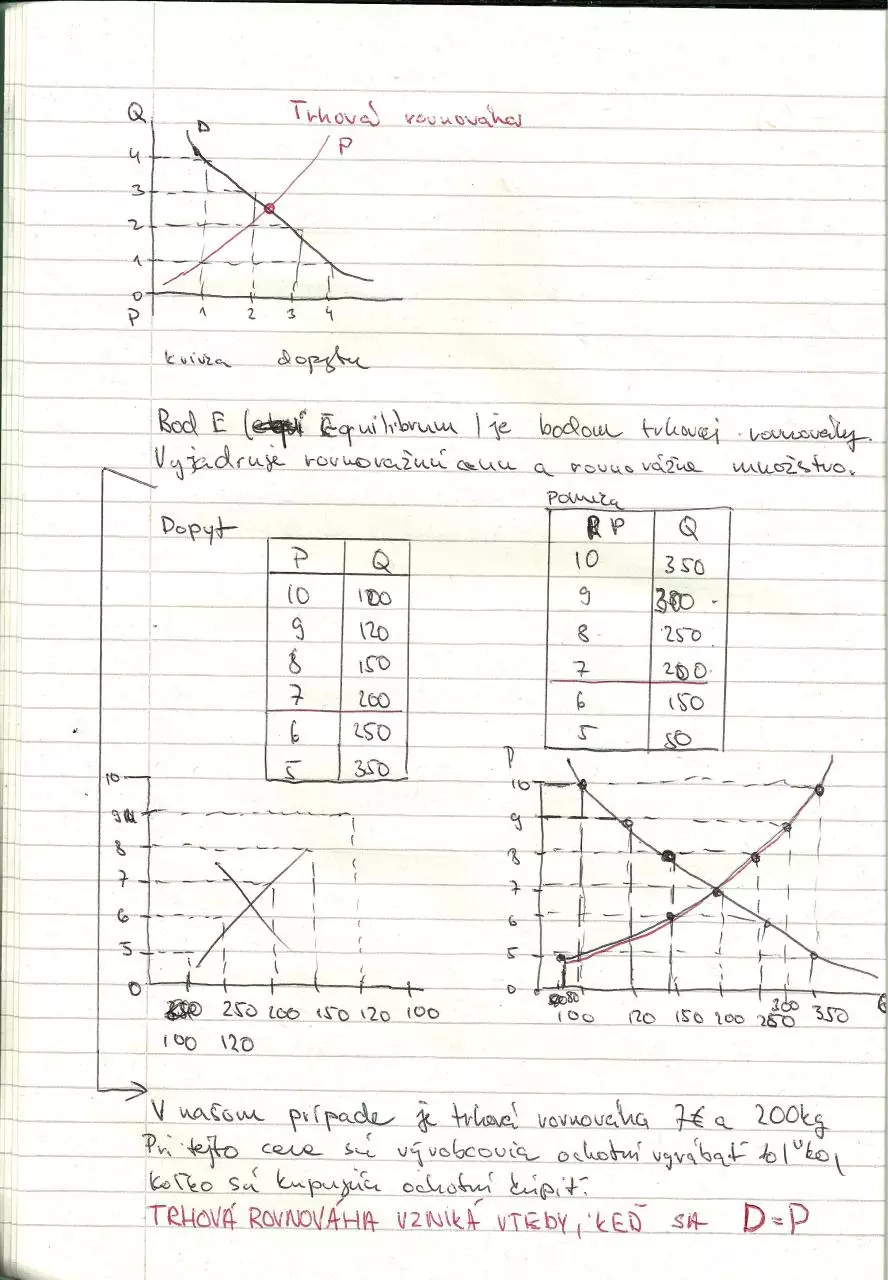 Trhová rovnováha
Q
D
P
4
3
2
1
0
P
1 2 3 4
krivka dopytu
Bod E (Equilibrum) je bodom trhovej rovnováhy.
Vyjadruje rovnovážnu cenu a rovnovážne množstvo.
Dopyt
P Q
10 100
9 120
8 150
7 200
6 250
5 350
Ponuka
P Q
10 350
9 300
8 250
7 200
6 150
5 80
10
9
8
7
6
5
0
250 200 150 120 100
100 120
P
10
9
8
7
6
5
0
80
100 120 150 200 250 300 350
V našom prípade je trhová rovnováha 7€ a 200kg
Pri tejto cene sú výrobcovia ochotní vyrábať toľko,
koľko sú kupujúci ochotní kúpiť.
TRHOVÁ ROVNOVÁHA VZNIKÁ VTEDY, KEĎ SA D=P